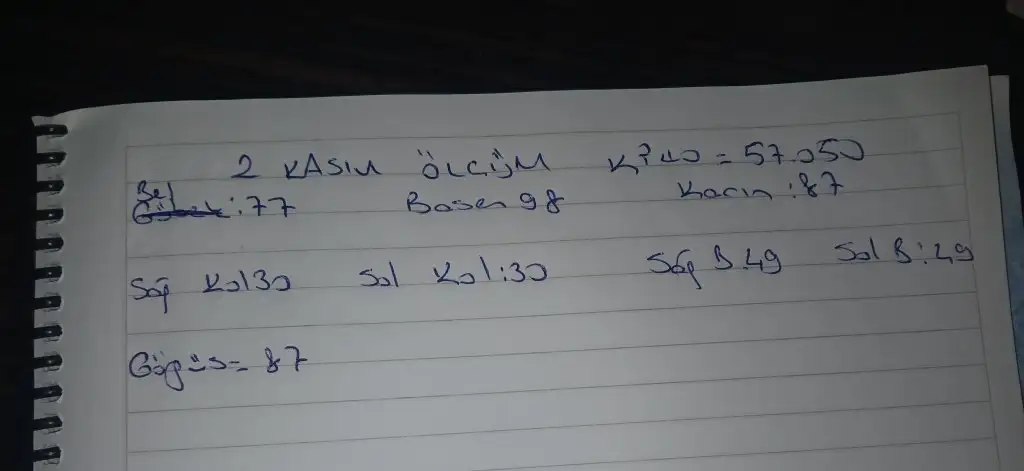 2 KASIM ÖLÇÜM KİLO = 57.050
Bel : 77 Basen 98 Karın : 87
Sağ Kol 30 Sol Kol : 30 Sağ B : 49 Sol B : 49
Göğüs = 87